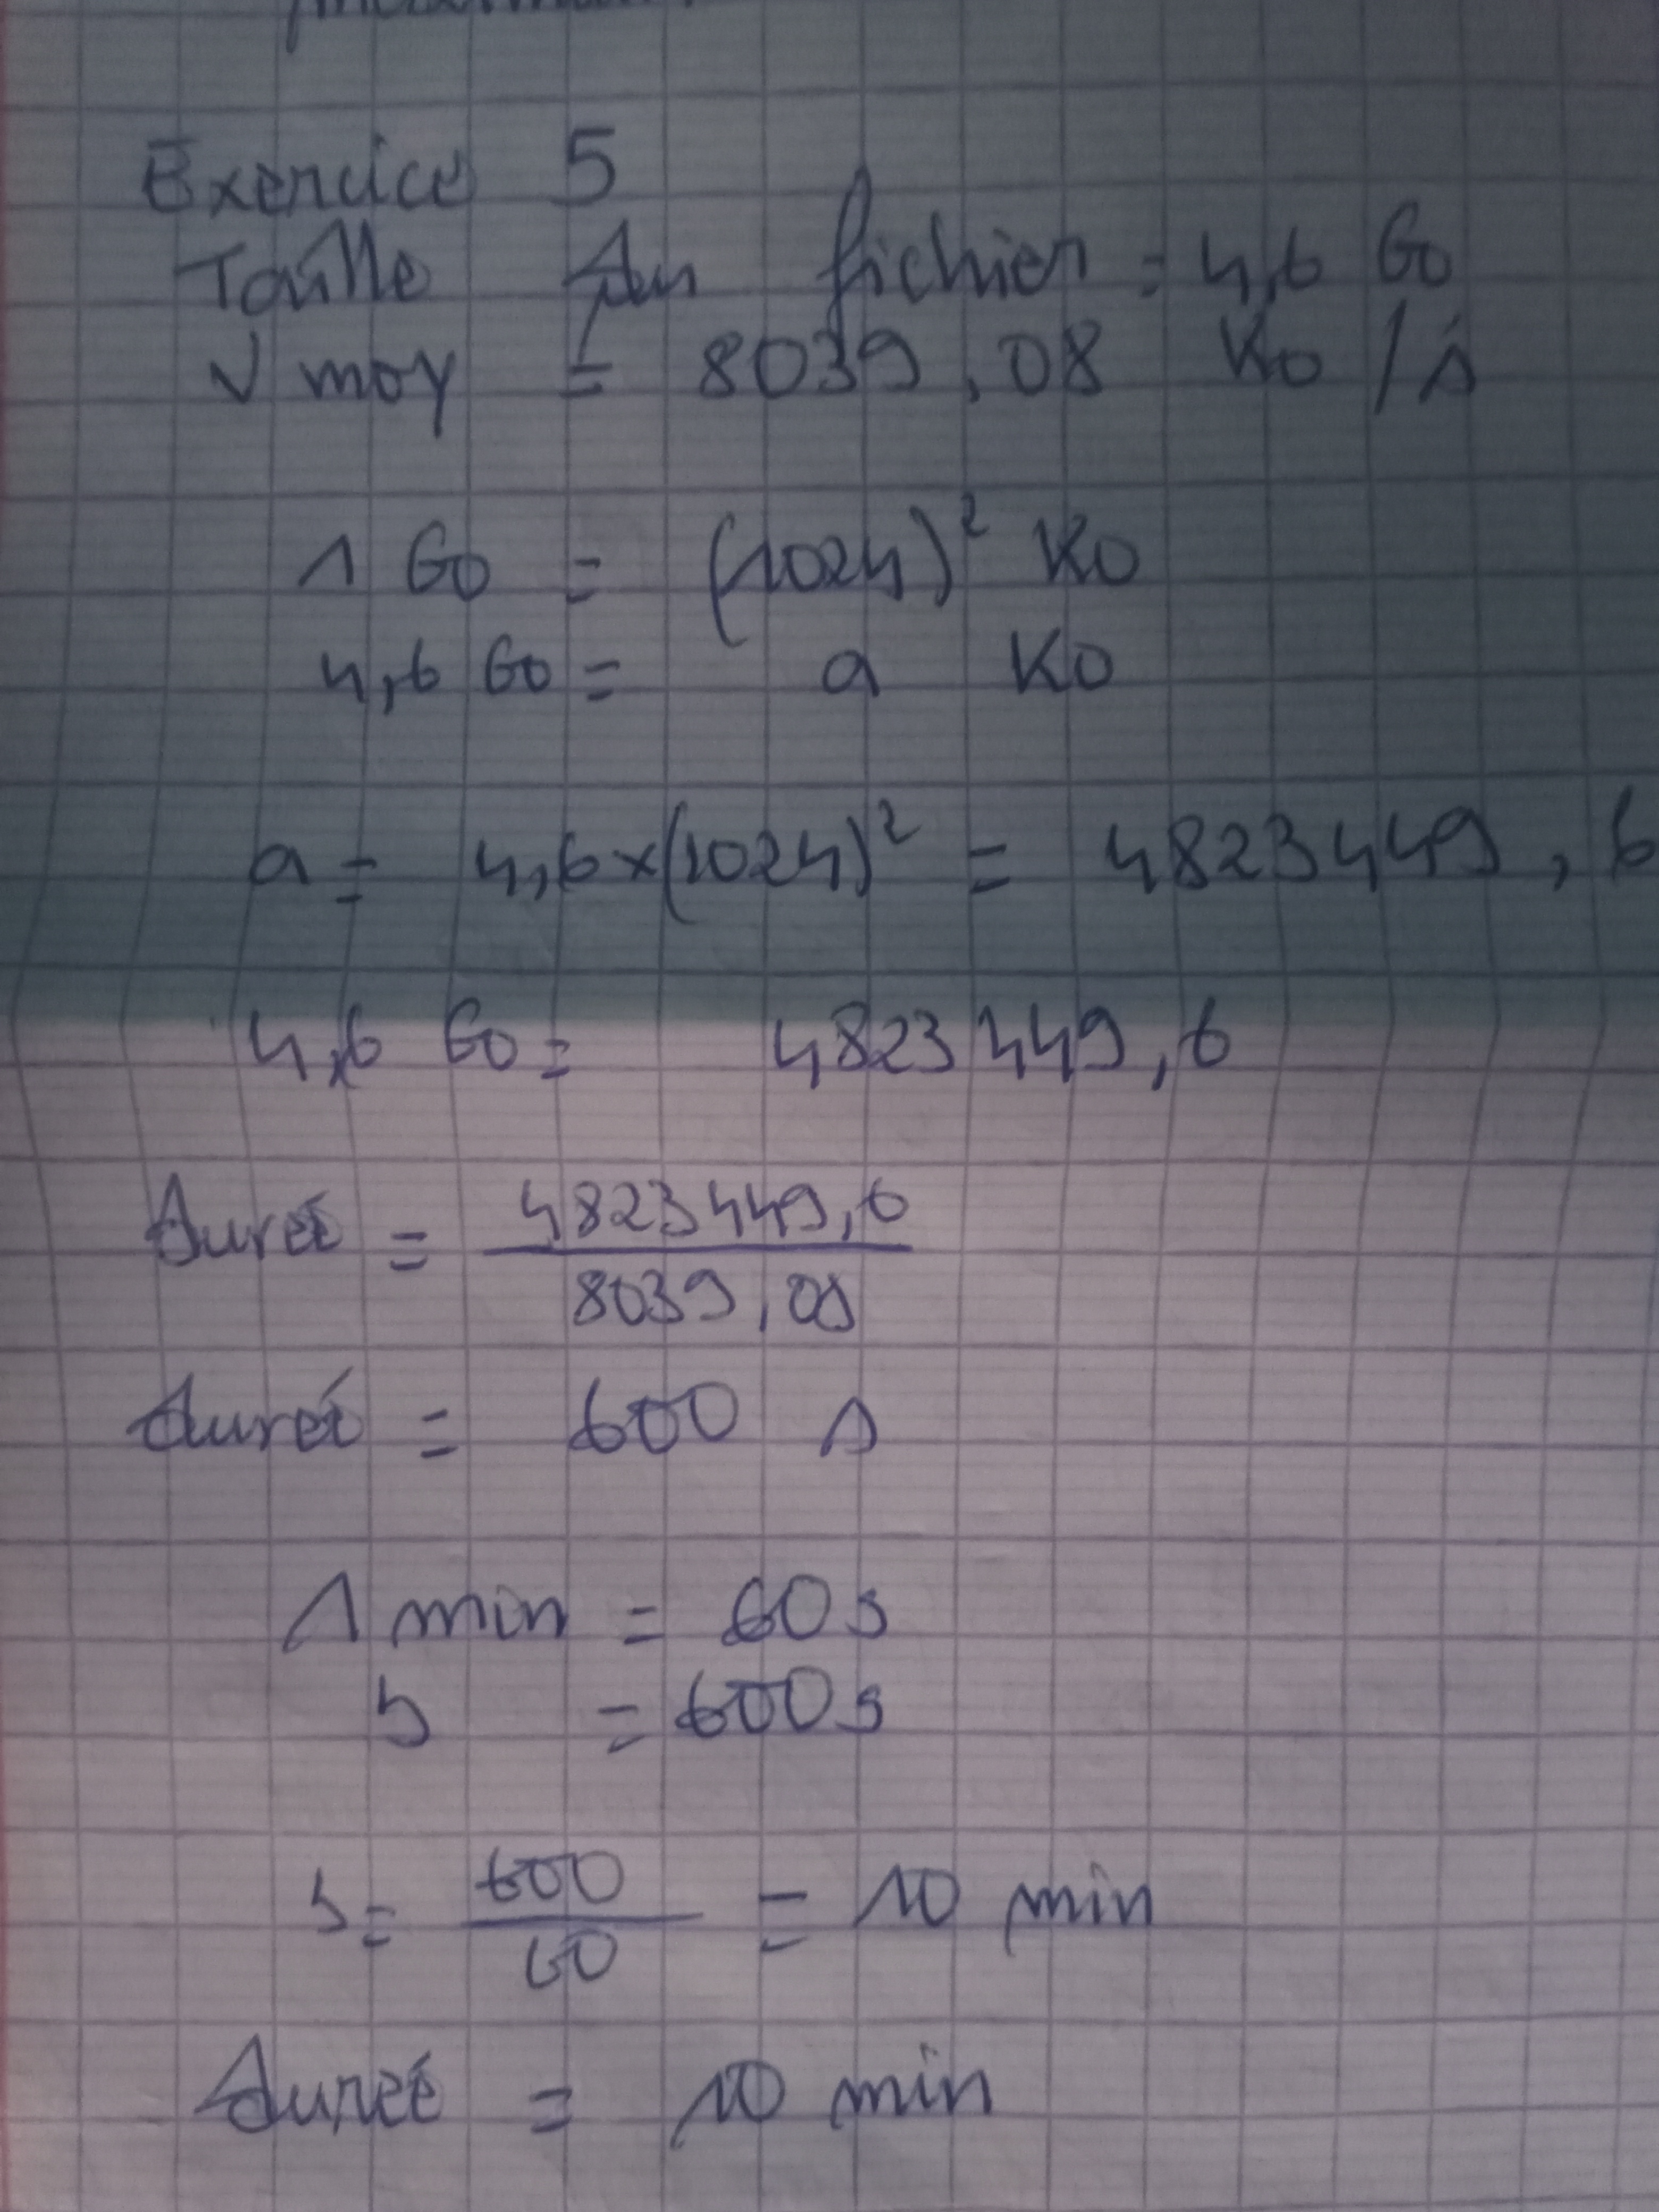 Exercice 5
Taille du fichier = 4,6 Go
V moy = 8039,08 Ko/s
1 Go = (1024)² Ko
4,6 Go = a Ko
a = 4,6×(1024)² = 4823449,6
4,6 Go = 4823449,6
dureé = 4823449,6
8039,08
dureé = 600 s
1 min = 60s
b = 600s
b = 600 = 10 min
60
dureé = 10 min